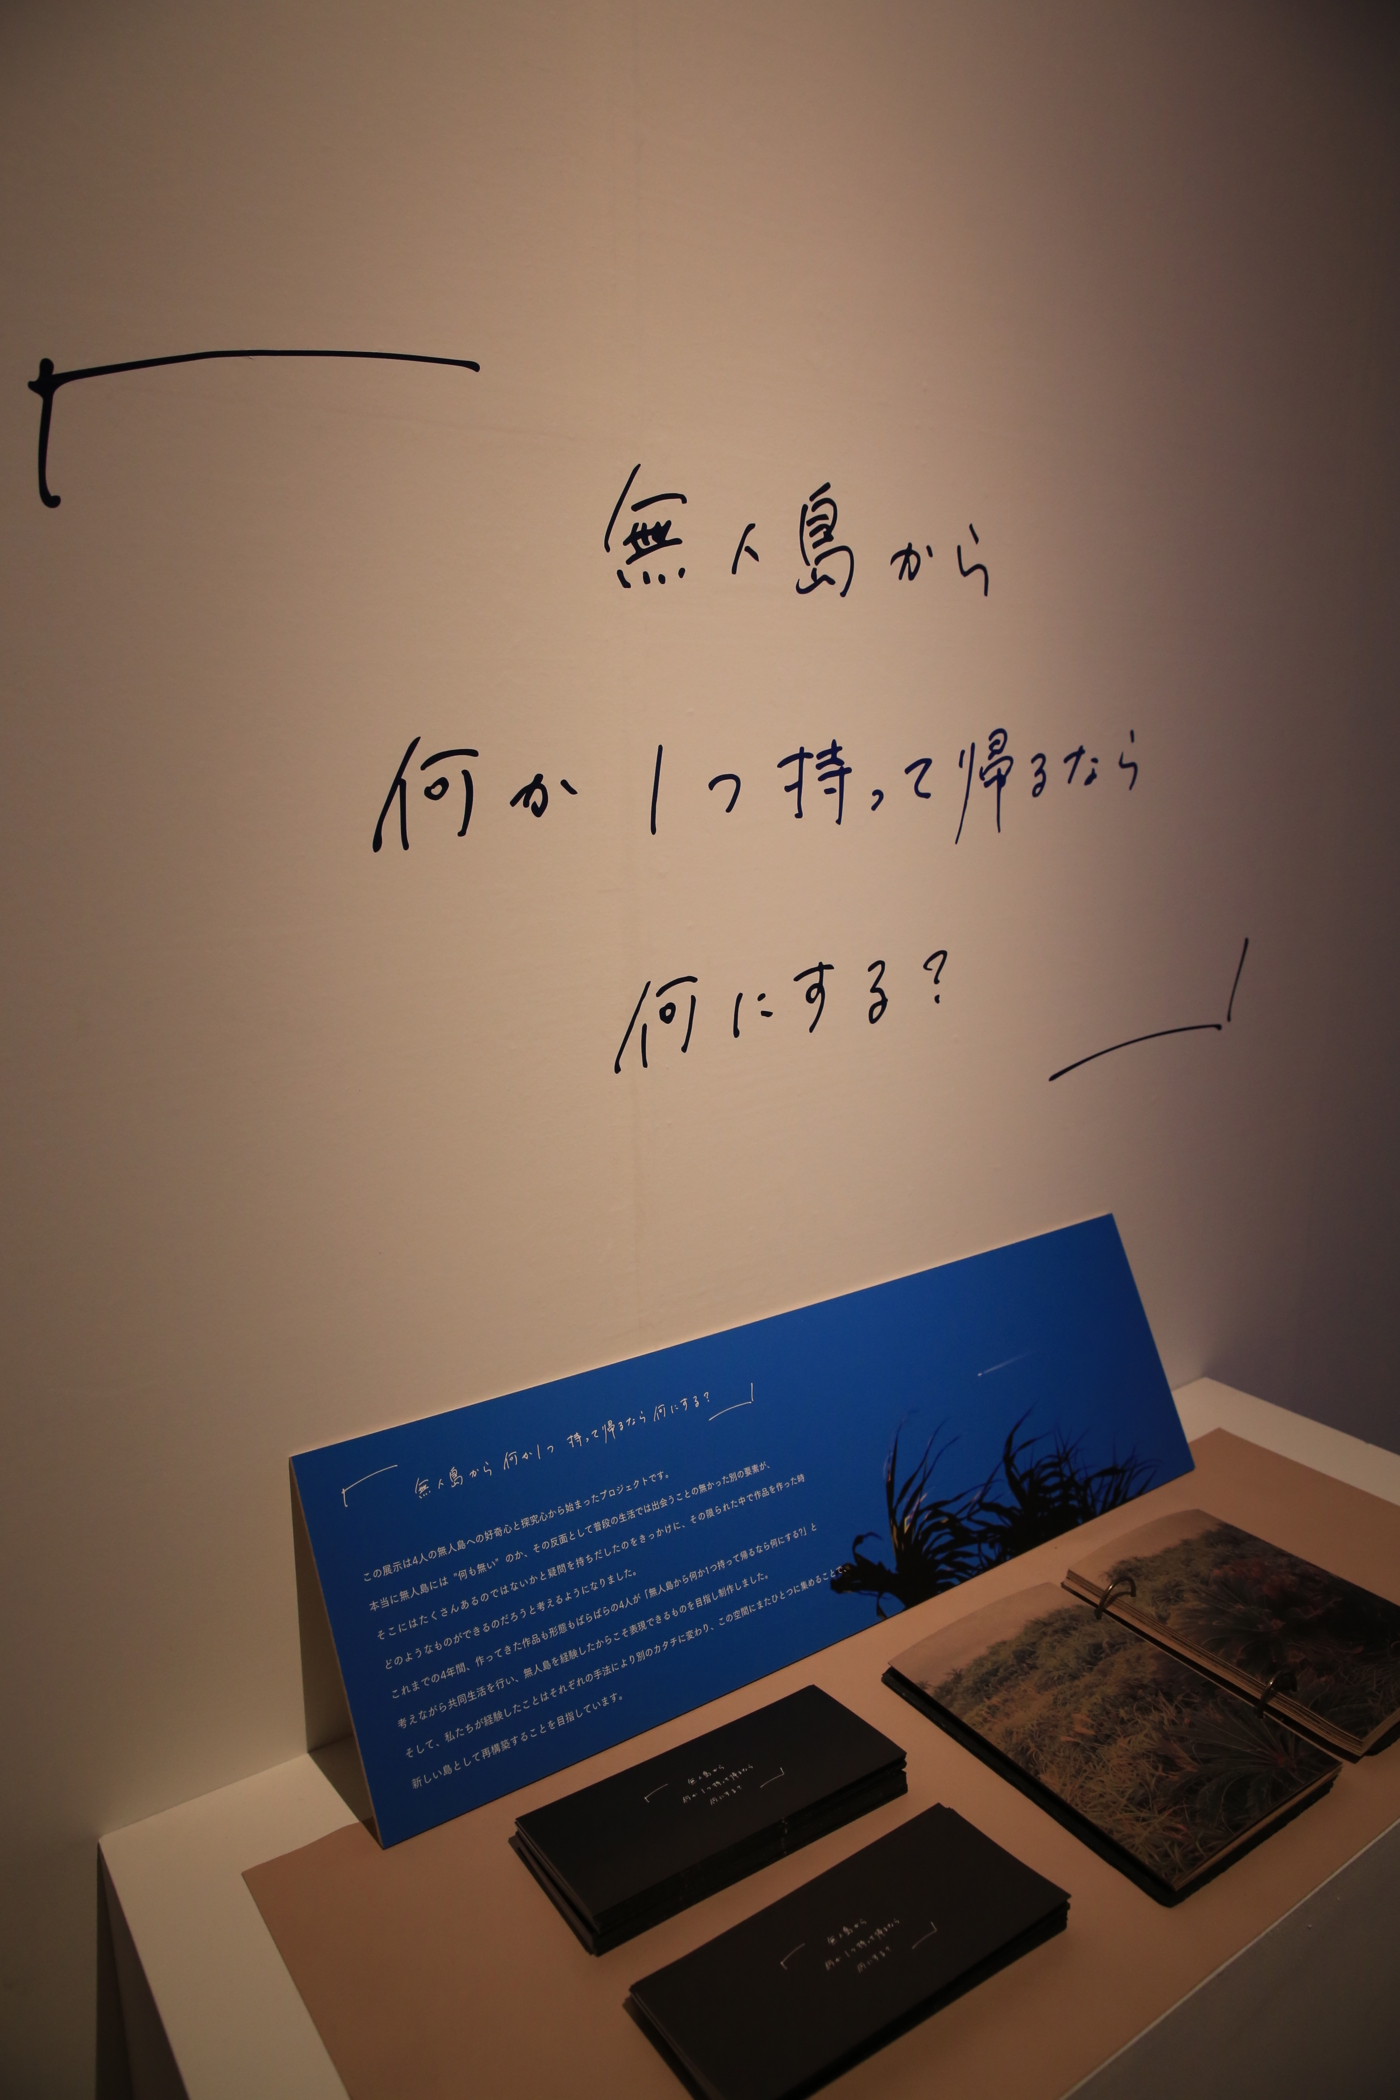 「
無人島から
何か1つ持って帰るなら
何にする?
」
「無人島から 何か1つ 持って帰るなら 何にする?」
この展示は4人の無人島への好奇心と探究心から始まったプロジェクトです。
本当に無人島には“何も無い”のか、その反面として普段の生活では出会うことの無かった別の要素が、
そこにはたくさんあるのではないかと疑問を持ちだしたのをきっかけに、その限られた中で作品を作った時
どのようなものができるのだろうと考えるようになりました。
これまでの4年間、作ってきた作品も形態もばらばらの4人が「無人島から何か1つ持って帰るなら何にする?」と
考えながら共同生活を行い、無人島を経験したからこそ表現できるものを目指し制作しました。
そして、私たちが経験したことはそれぞれの手法により別のカタチに変わり、この空間にまたひとつに集めることで、
新しい島として再構築することを目指しています。
「無人島から
何か1つ持って帰るなら
何にする?」
「無人島から
何か1つ持って帰るなら
何にする?」